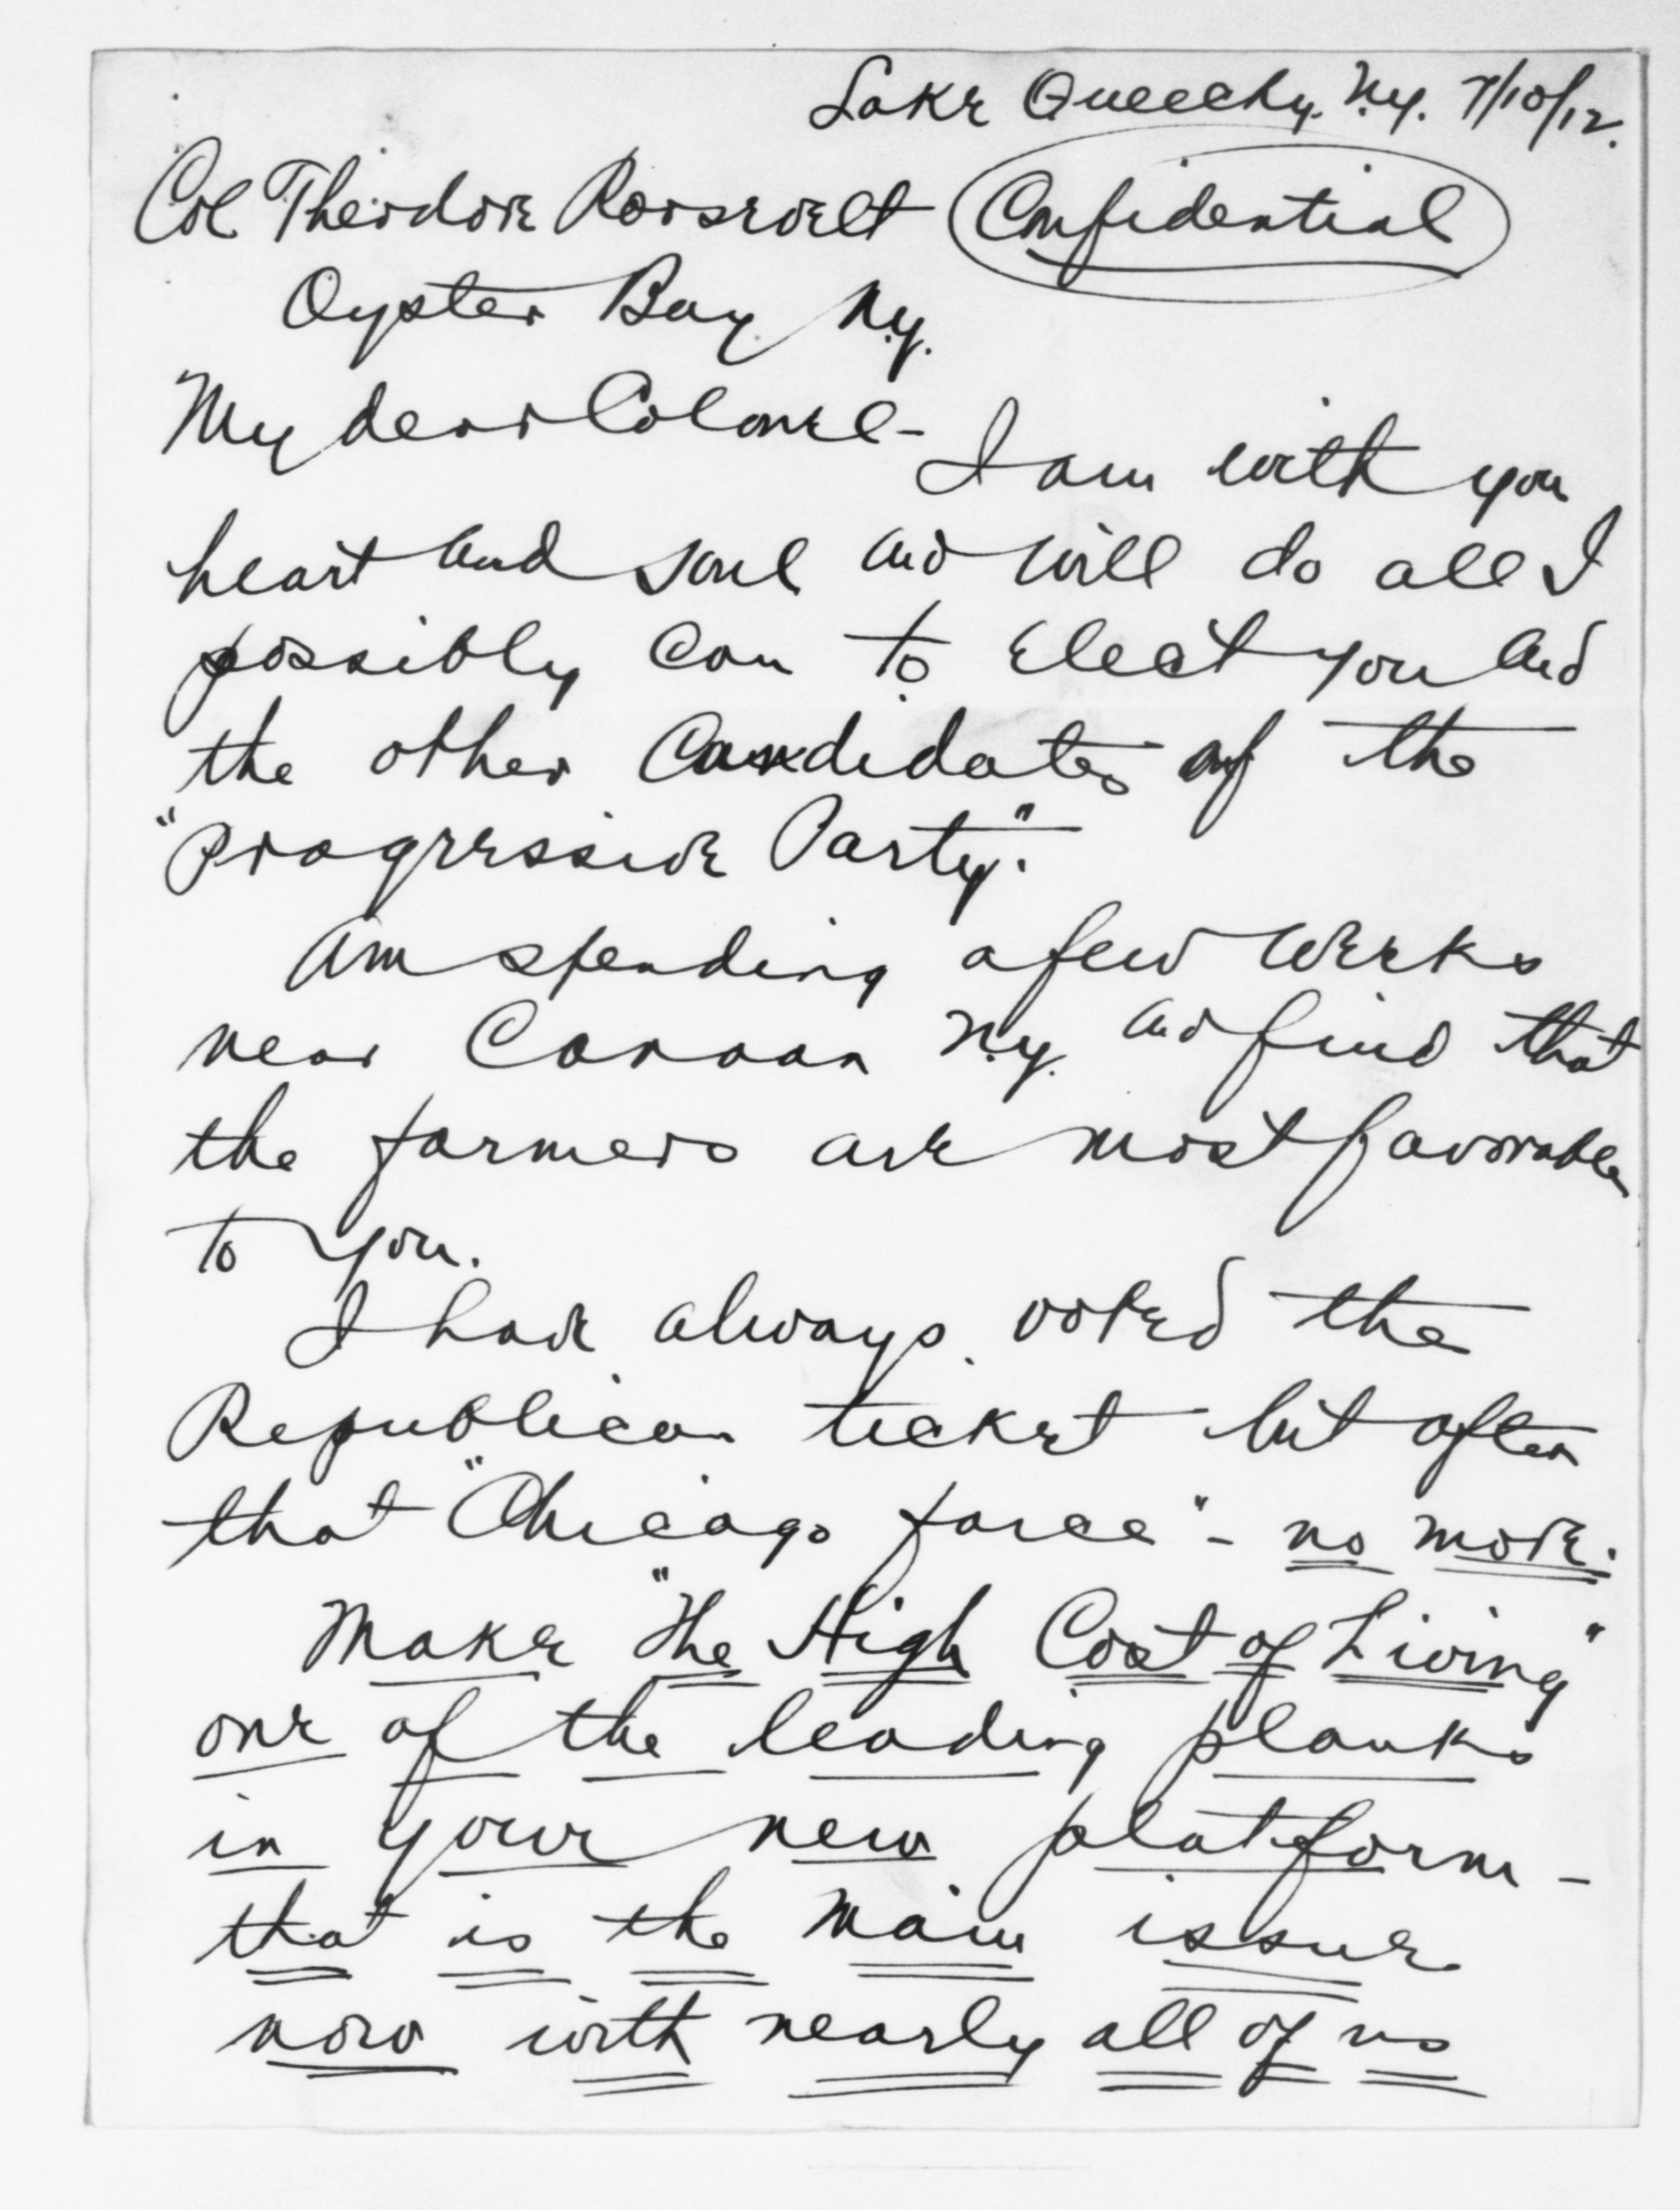 Lake Queechy. N.Y. 7/10/12.
Col Theodore Roosevelt Confidential
Oyster Bay N.Y.
My dear Colonel-
I am with you
heart and soul and will do all I
possibly can to elect you and
the other Candidates of the
"Progressive Party".
Am spending a few weeks
near Canaan N.Y. and find that
the farmers are most favorable
to you.
I have always voted the
Republican ticket but after
that "Chicago farce" - no more.
Make "The High Cost of Living"
one of the leading planks
in your new platform -
that is the main issue
now with nearly all of us